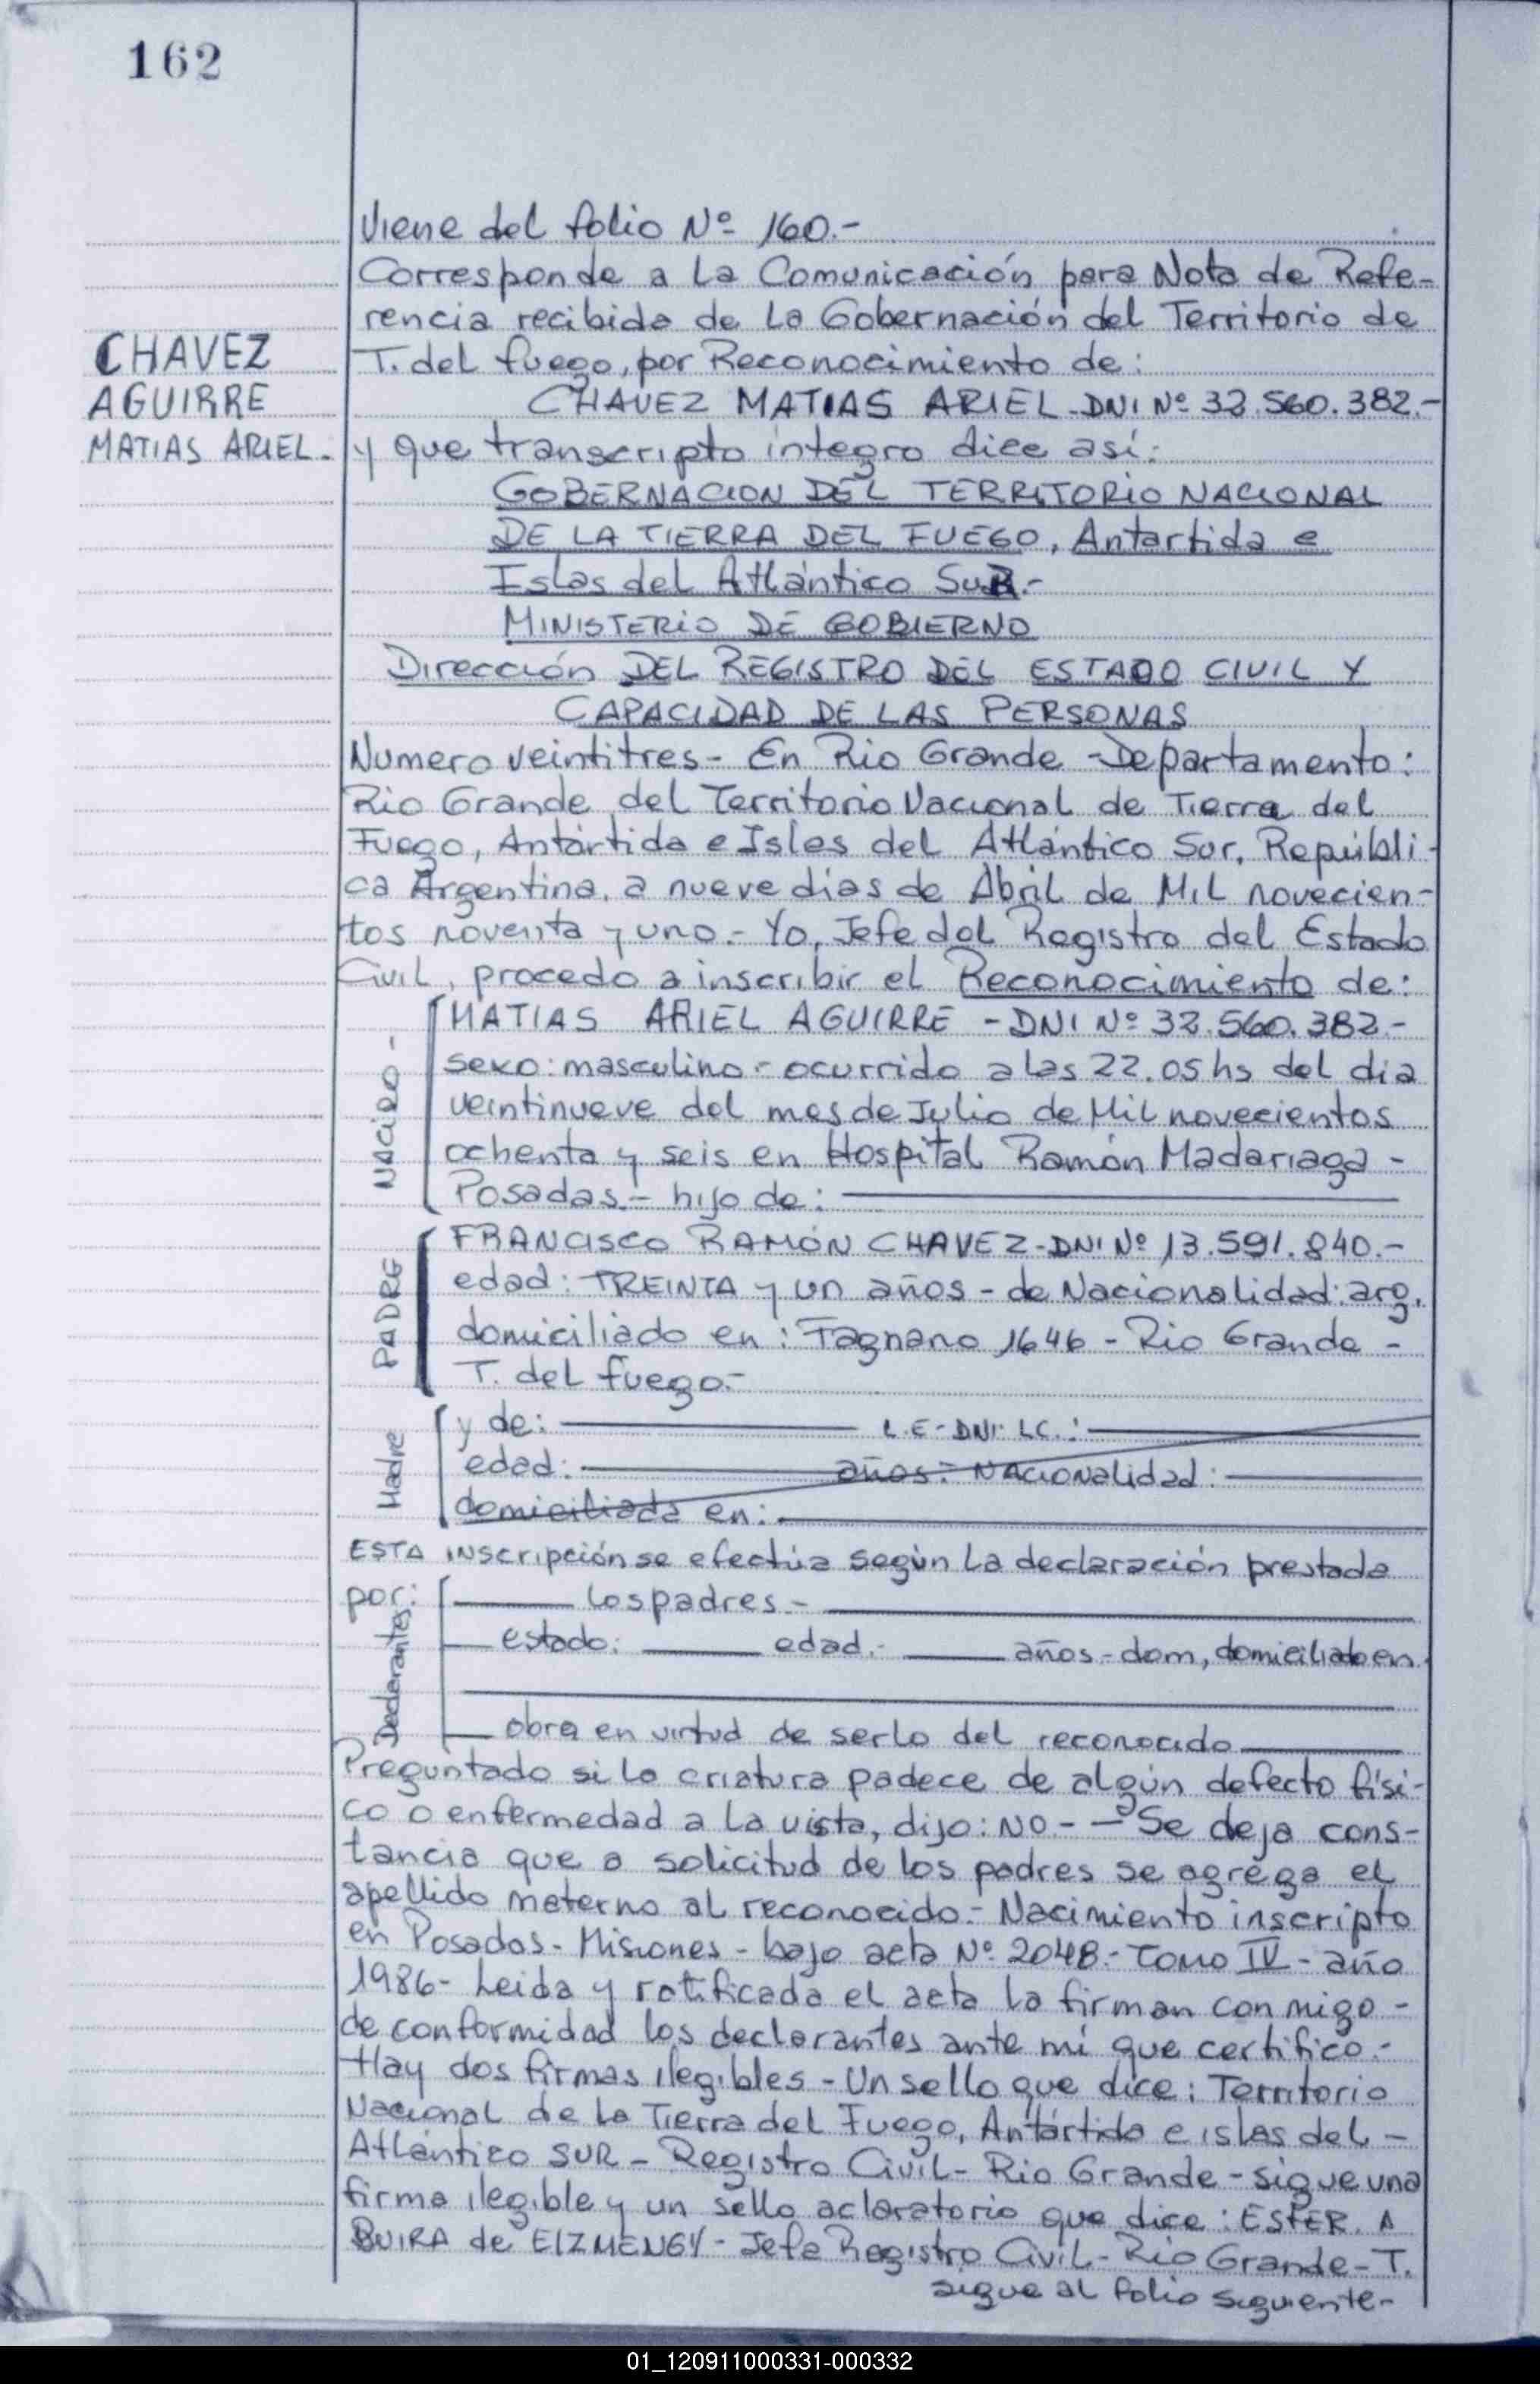 162
Viene del folio Nº 160.-
Corresponde a la Comunicación para Nota de Refe-
rencia recibida de la Gobernación del Territorio de
T. del fuego, por Reconocimiento de:
CHAVEZ
AGUIRRE
MATIAS ARIEL.-
CHAVEZ MATIAS ARIEL - DNI Nº 32.560.382.-
y que transcripto íntegro dice así:
GOBERNACION DEL TERRITORIO NACIONAL
DE LA TIERRA DEL FUEGO, Antartida e
Islas del Atlántico SUR.-
MINISTERIO DE GOBIERNO
Dirección DEL REGISTRO DEL ESTADO CIVIL Y
CAPACIDAD DE LAS PERSONAS
Numero veintitres - En Rio Grande - Departamento:
Rio Grande del Territorio Nacional de Tierra del
Fuego, Antártida e Islas del Atlántico Sur, Repúbli-
ca Argentina, a nueve dias de Abril de Mil novecien-
tos noventa y uno.- Yo, Jefe del Registro del Estado
Civil, procedo a inscribir el Reconocimiento de:
NACIDO -
MATIAS ARIEL AGUIRRE - DNI Nº 32.560.382.-
sexo: masculino - ocurrido a las 22.05 hs del dia
veintinueve del mes de Julio de Mil novecientos
ochenta y seis en Hospital Ramón Madariaga -
Posadas.- hijo de:
PADRE
FRANCISCO RAMÓN CHAVEZ - DNI Nº 13.591.840.-
edad: TREINTA y un años - de Nacionalidad: arg.
domiciliado en: Fagnano 1646 - Rio Grande -
T. del fuego.-
Madre
y de: L.E - DNI - LC.:
edad: años - NACIONALIDAD:
domiciliada en:
ESTA inscripción se efectúa según la declaración prestada
por:
Declarantes
los padres.-
estado: edad.- años - dom, domiciliado en
obra en virtud de serlo del reconocido
Preguntado si la criatura padece de algún defecto físi-
co o enfermedad a la vista, dijo: NO.- - Se deja cons-
tancia que a solicitud de los padres se agrega el
apellido materno al reconocido.- Nacimiento inscripto
en Posadas - Misiones - bajo acta Nº 2048.- Tomo IV - año
1986 - Leida y ratificada el acta la firman conmigo -
de conformidad los declarantes ante mí que certifico.-
Hay dos firmas ilegibles - Un sello que dice: Territorio
Nacional de la Tierra del Fuego, Antártida e islas del -
Atlántico SUR - Registro Civil - Rio Grande - sigue una
firma ilegible y un sello aclaratorio que dice: ESTER. A
BUIRA de EIZMENGY - Jefe Registro Civil - Rio Grande - T.
sigue al folio siguiente -
01_120911000331-000332